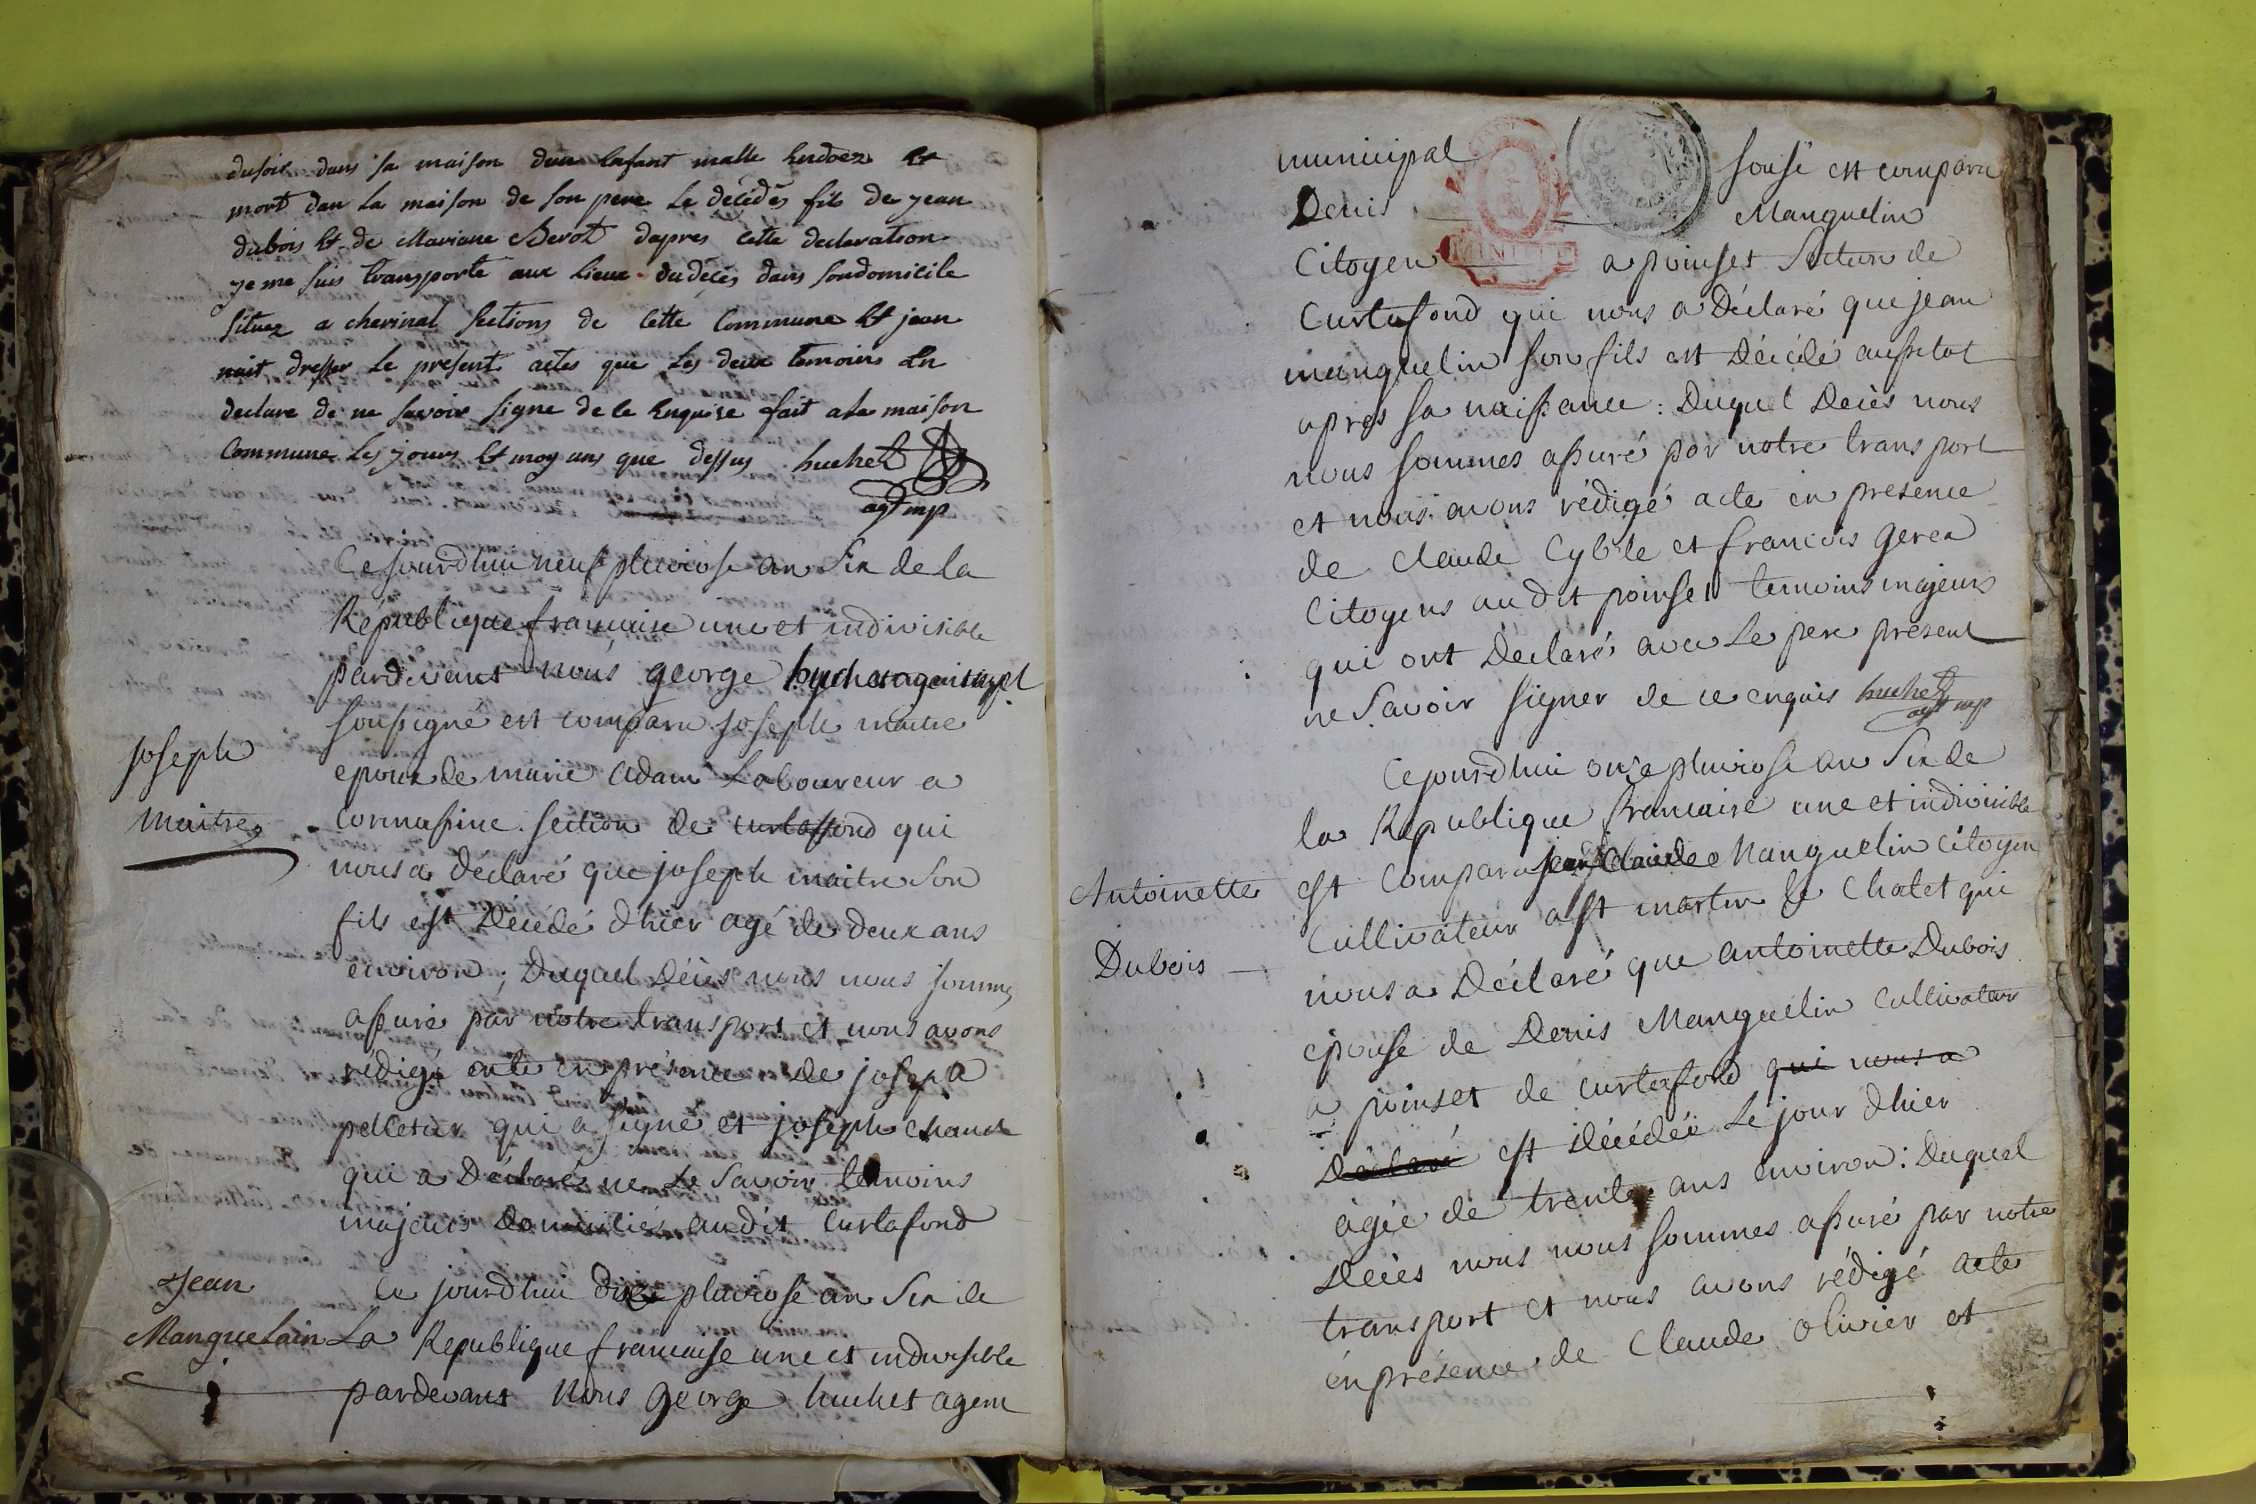 dusoir dans sa maison dun Enfant malle Endoez Et
mort dan La maison de son pere Le décédés fils de jean
dubois Et de Mariane Berot dapres cette declaration
je me suis transporté aux Lieux du décès dans sondomicile
situez a chevinal sections de Cette Commune Et jean
nait dresser Le present actes que Les deux temoins En
declare de ne savoir signe de le Enquise fait a La maison
Commune Les jours Et moy ans que dessus huchet
agt mp
Cejourdhui neuf pluviose an Six de la
République francaise une et indivisible
pardevant nous george huchet agent mpl
soussigné est comparu joseph maitre
epoux de marie Adam Laboureur a
Joseph
maitre
Cormassine section de curtaffond qui
nous a Déclaré que joseph maitre son
fils est Décédé dhier agé de deux ans
environ; Duquel Décès nous nous sommes
assuré par notre transport et nous avons
rédigé acte en présence de joseph
pelletier qui a signé et joseph chanel
qui a Déclaré ne Le Savoir temoins
majeurs Domiciliés audit Curtafond
Jean
Manguelain
Ce jourdhui dixe pluviose an Six de
La Republique francaise une et indivisible
pardevant Nous george huchet agent
municipal sousé est comparu
Denis Manguelin
Citoyen a poinset Section de
Curtafond qui nous a Déclaré que jean
manguelin son fils est Décédé aussitot
apres sa naissance : Duquel Décès nous
nous sommes assuré par notre transport
et nous avons rédigé acte en presence
de Claude Cyble et francois gerea
Citoyens audit poinset temoins majeurs
qui ont Déclaré avec Le pere présent
ne Savoir signer de ce enquis huchet
agt mp
Cejourdhui onze pluviose an Six de
la République francaise une et indivisible
Antoinette
Dubois
est Comparu jean Claude Manguelin Citoyen
Cultivateur a St martin le Chatet qui
nous a Déclaré que antoinette Dubois
epouse de Denis Manguelin Cultivateur
a poinset de curtafond qui nous a
Déclaré est Décédée Le jour dhier
agée de trente ans environ : Duquel
Décès nous nous sommes assuré par notre
transport et nous avons rédigé acte
en présence de Claude olivier et
MINUTE